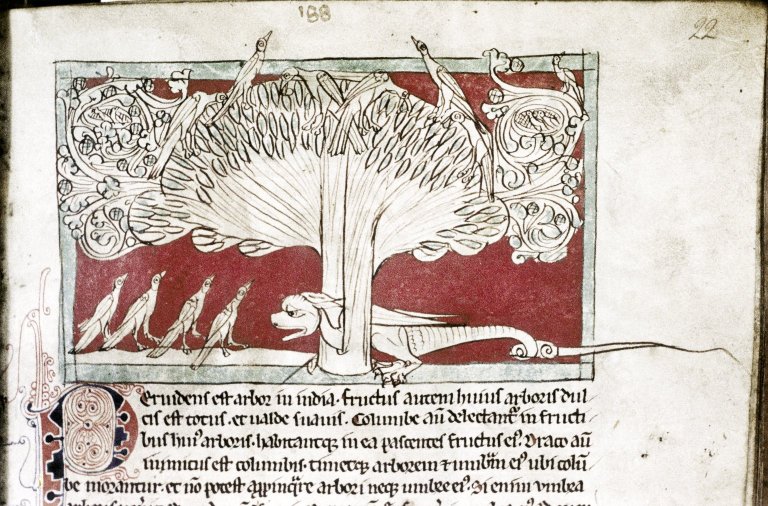 188
22
Peridens est arbor in india. fructus autem huius arboris dul
cis est totus. et ualde suauis. Columbe au delectant in fructi
bus hui arboris. habitantque in ea pascentes fructus ei. Draco au
inimicus est columbis. timetque arborem & umbram ei ubi colu
be morantur. et no potest appinqre arbori neque umbre ei. Si enim umbra